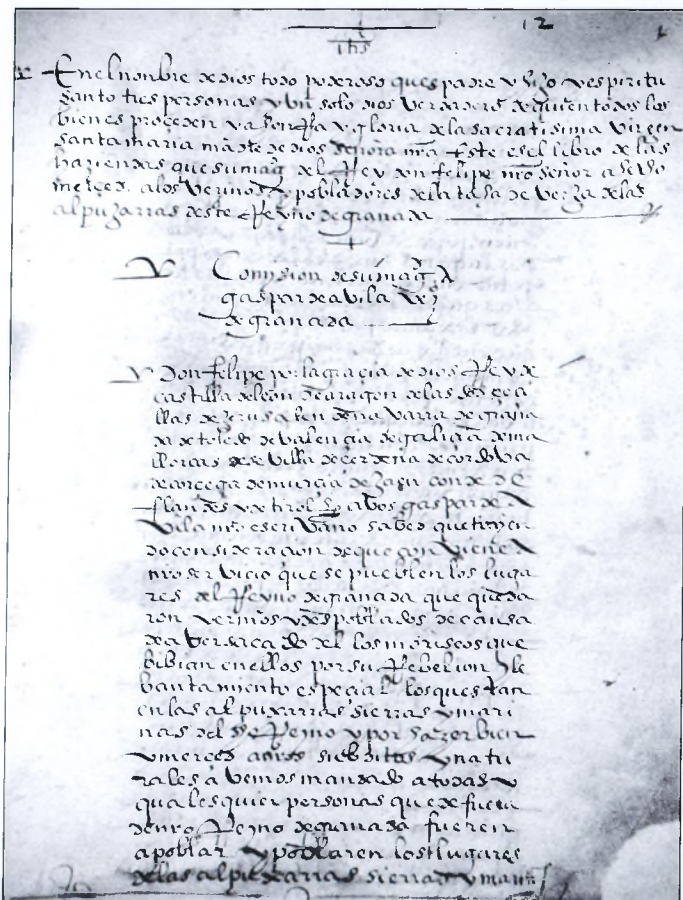 12 1
ihs
En el nonbre de dios todo poderoso ques padre y hijo y espiritu
santo tres personas y un solo dios verdadero de quien todos los
bienes proceden y a honrra y gloria de la sacratisima virgen
santa maria madre de dios señora nrā Este es el libro de las
haziendas que su magᵈ del Rey don felipe nrō señor a hecho
merced a los vezinos y pobladores de la taha de verja de las
alpuxarras deste Reyno de granada
Comysion de su magᵈ A
gaspar de avila
de granada
Don felipe por la gracia de dios Rey de
castilla de leon de aragon de las dos çeci
llas de jerusalen de navarra de grana
da de toledo de valencia de galizia de ma
llorcas de sevilla de cerdeña de cordova
de corcega de murcia de jaen conde de
flandes y de tirol a vos gaspar de A
vila nrō escrivano sabed que tenyen
do consideracion de que conviene A
nrō servicio que se pueblen los luga
res del Reyno de granada que queda
ron yermos y despoblados de causa
de aber sacado del los moriscos que
bibian en ellos por su Rebelion y le
bantamiento especial los questan
en las alpuxarras sierras y mari
nas del dhō Reyno y por hazer bien
y merced a nrōs subditos y natu
rales abemos mandado a todas y
quales quier personas que de fuera
de nrō Reyno de granada fueren
a poblar y poblaren los dhōs lugares
de las alpuxarras sierras y marin